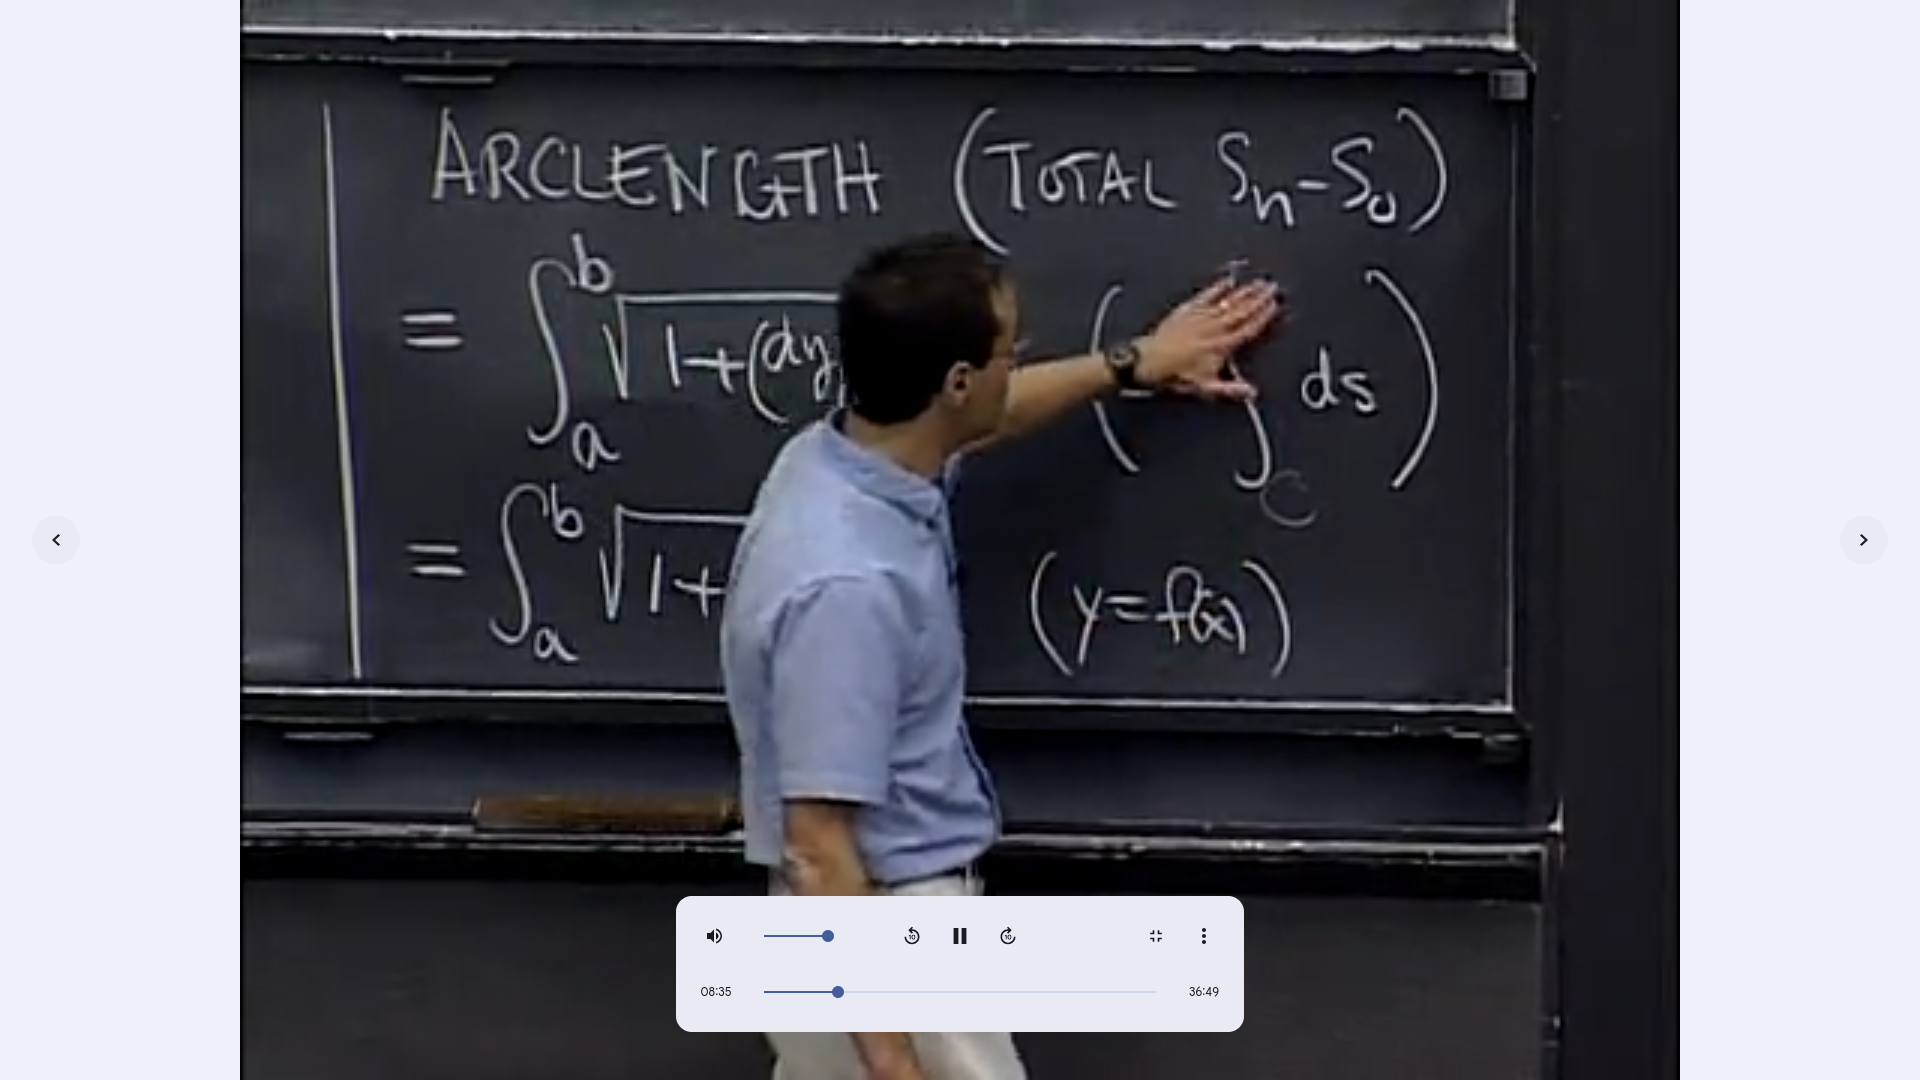 ARCLENGTH (TOTAL Sn-S0)
= ∫ab √1+(dy (= ∫C ds)
= ∫ab √1+ (y=f(x))
10 10
08:35 36:49